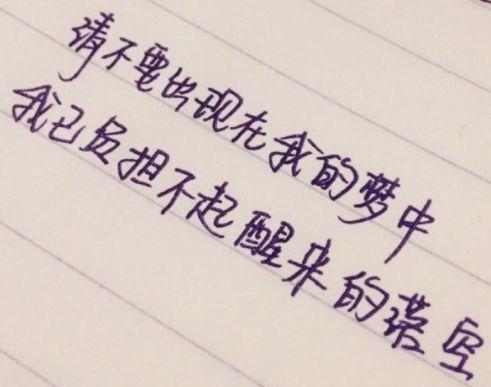 请不要出现在我的梦中
我已负担不起醒来的落空